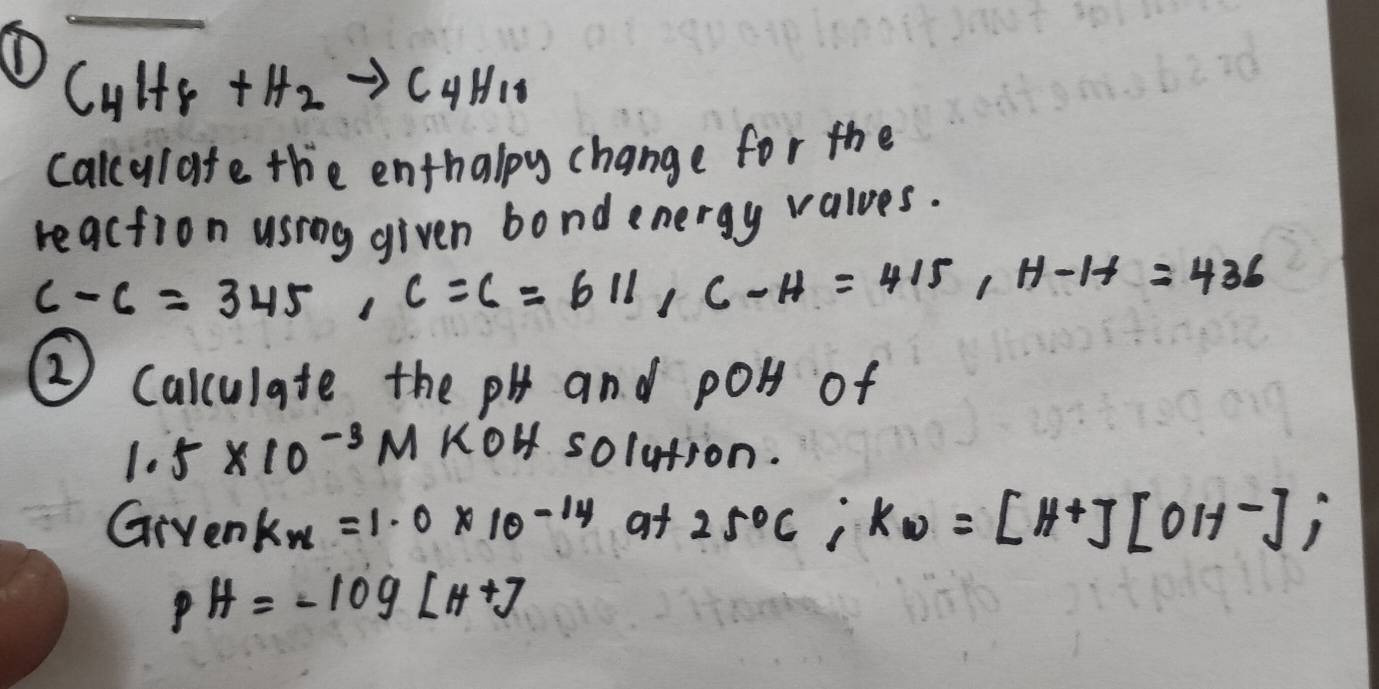 ① C4H8 + H2 → C4H10
Calculate the enthalpy change for the
reaction using given bond energy values.
C-C = 345, C=C = 611, C-H = 415, H-H = 436
② Calculate the pH and pOH of
1.5 x 10^-3 M KOH solution.
Given Kw = 1.0 x 10^-14 at 25°C; Kw = [H+][OH-];
pH = -log [H+]